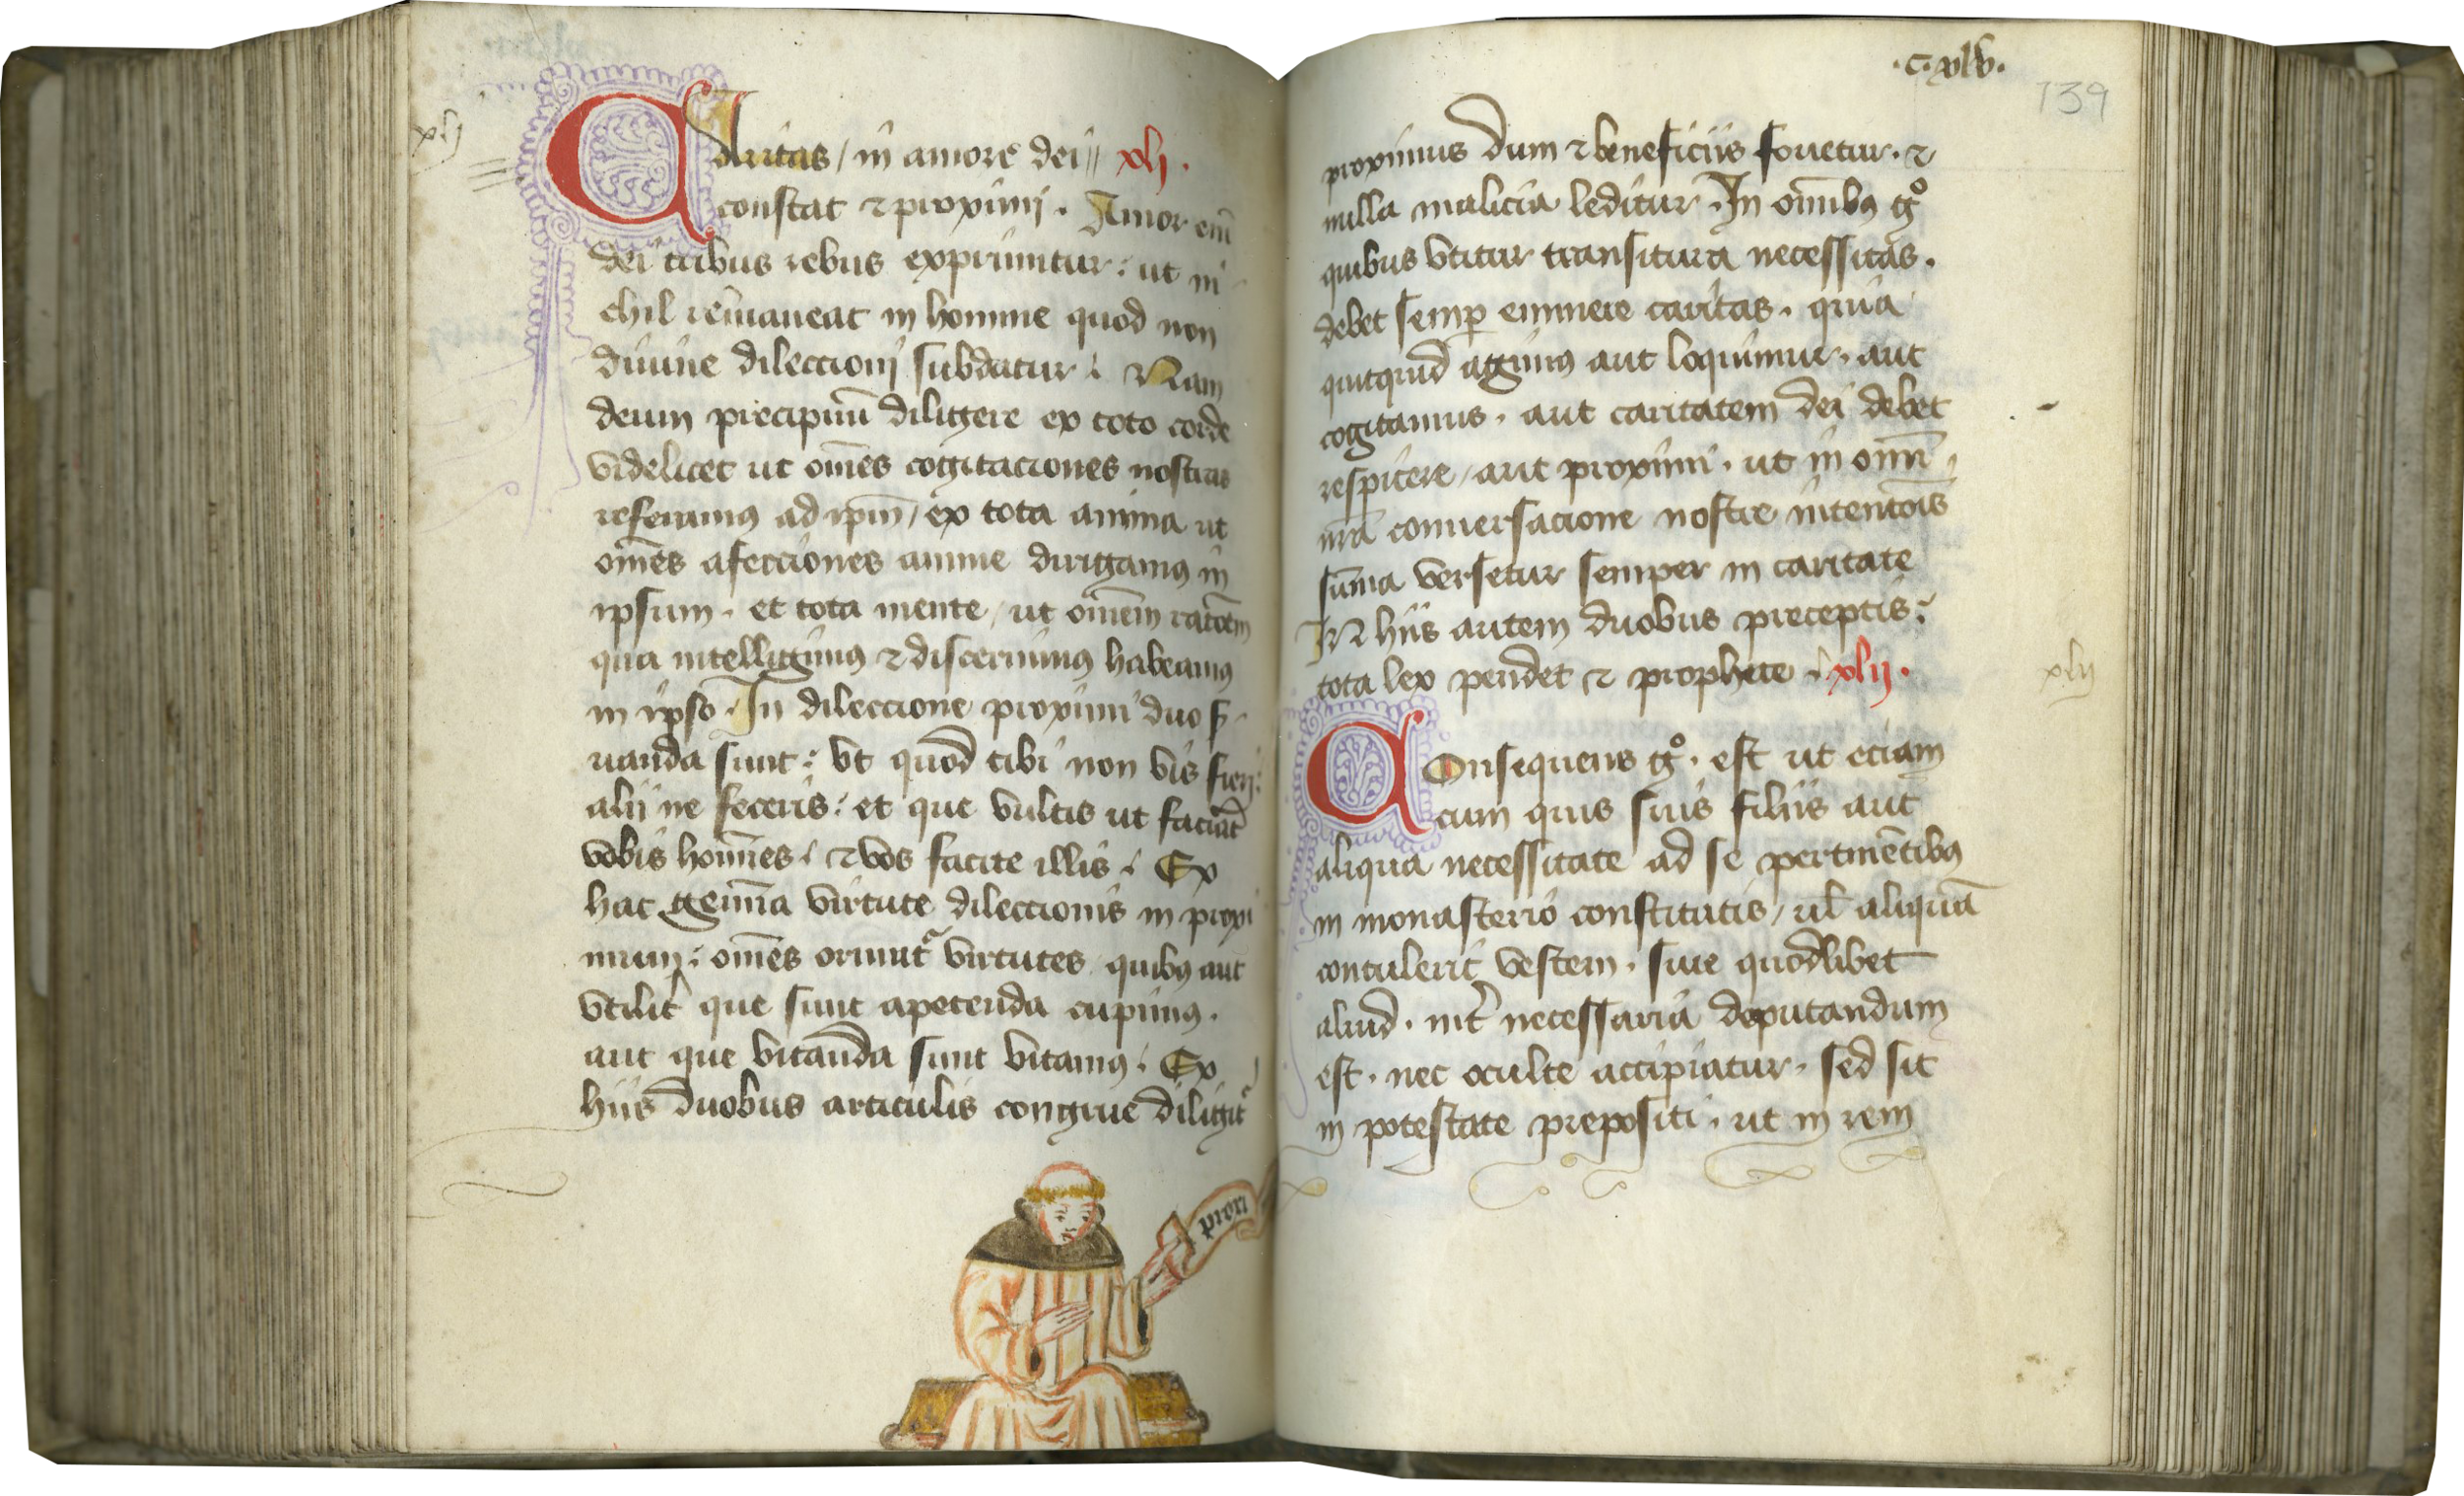 xlj
Caritas / in amore dei // xlj .
constat ⁊ proximj . Amor em̄
dei tribus rebus exprimitur : ut ni
chil remaneat in homine quod non
diuine dileccionj subdatur . Nam
deum precipiūt diligere ex toto corde
videlicet ut om̄es cogitaciones nostras
referamꝰ ad ip̄m / ex tota anima ut
om̄es afecciones anime dirigamꝰ in
ipsum . et tota mente / ut om̄em racōem
qua intelligimꝰ ⁊ discernimꝰ habeamꝰ
in ipso . In dileccione proximi duo s̄
uanda sunt : vt quod tibi non vis fierj :
alij ne feceris : et que vultis ut faciāt
vobis hoīnes . ⁊ vos facite illis . Ex
hac gemīa virtute dileccionis in proxi
mum : om̄es oriunt᷑ virtutes quibꝰ aut
vtilit᷑ que sunt apetenda cupimꝰ .
aut que vitanda sunt vitamꝰ . Ex
hijs duobus articulis congrue diligit᷑
priori
. C . xlv .
139
proximus dum ⁊ beneficiis fouetur . ⁊
nulla malicia leditur . In om̄ibꝰ gͦ
quibus vtitur transitura necessitas .
debet semꝑ eminere caritas . quia
quitquid agimꝰ aut loquimur . aut
cogitamus . aut caritatem dei debet
respicere / aut proximi . ut in om̄i
nr̄a conuersacione nostre intentōis
sūma versetur semper in caritate
IN hiis autem duobus preceptis :
tota lex pendet ⁊ prophete . xlij .
xlij
Consequens gͦ . est ut eciam
cum quis suis filiis aut
aliqua necessitate ad se pertinētibꝰ
in monasterio constitutis / ul̄ aliquā
contulerit vestem . siue quodlibet
aliud . int᷑ necessaria deputandum
est . nec oculte accipiatur . sed sit
in potestate prepositi . ut in rem